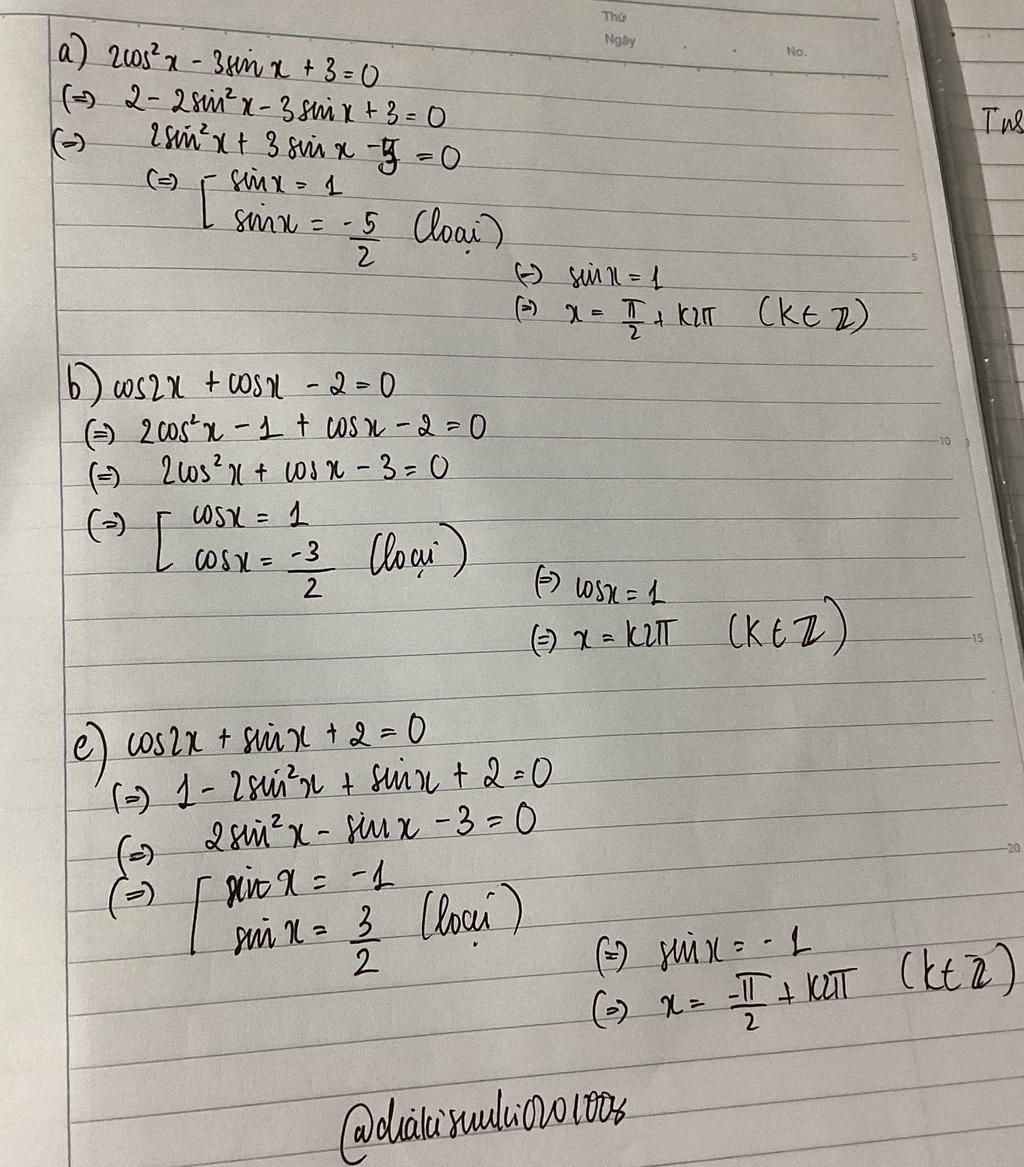 Thứ
Ngày
No.
a) 2cos²x - 3sinx + 3 = 0
(=) 2 - 2sin²x - 3sinx + 3 = 0
(=) 2sin²x + 3sinx - 5 = 0
(=) [ sinx = 1
sinx = -5/2 (loại)
(=) sinx = 1
(=) x = π/2 + k2π (k ∈ ℤ)
b) cos2x + cosx - 2 = 0
(=) 2cos²x - 1 + cosx - 2 = 0
(=) 2cos²x + cosx - 3 = 0
(=) [ cosx = 1
cosx = -3/2 (loại)
(=) cosx = 1
(=) x = k2π (k ∈ ℤ)
e) cos2x + sinx + 2 = 0
(=) 1 - 2sin²x + sinx + 2 = 0
(=) 2sin²x - sinx - 3 = 0
(=) [ sinx = -1
sinx = 3/2 (loại)
(=) sinx = -1
(=) x = -π/2 + k2π (k ∈ ℤ)
5
10
15
20